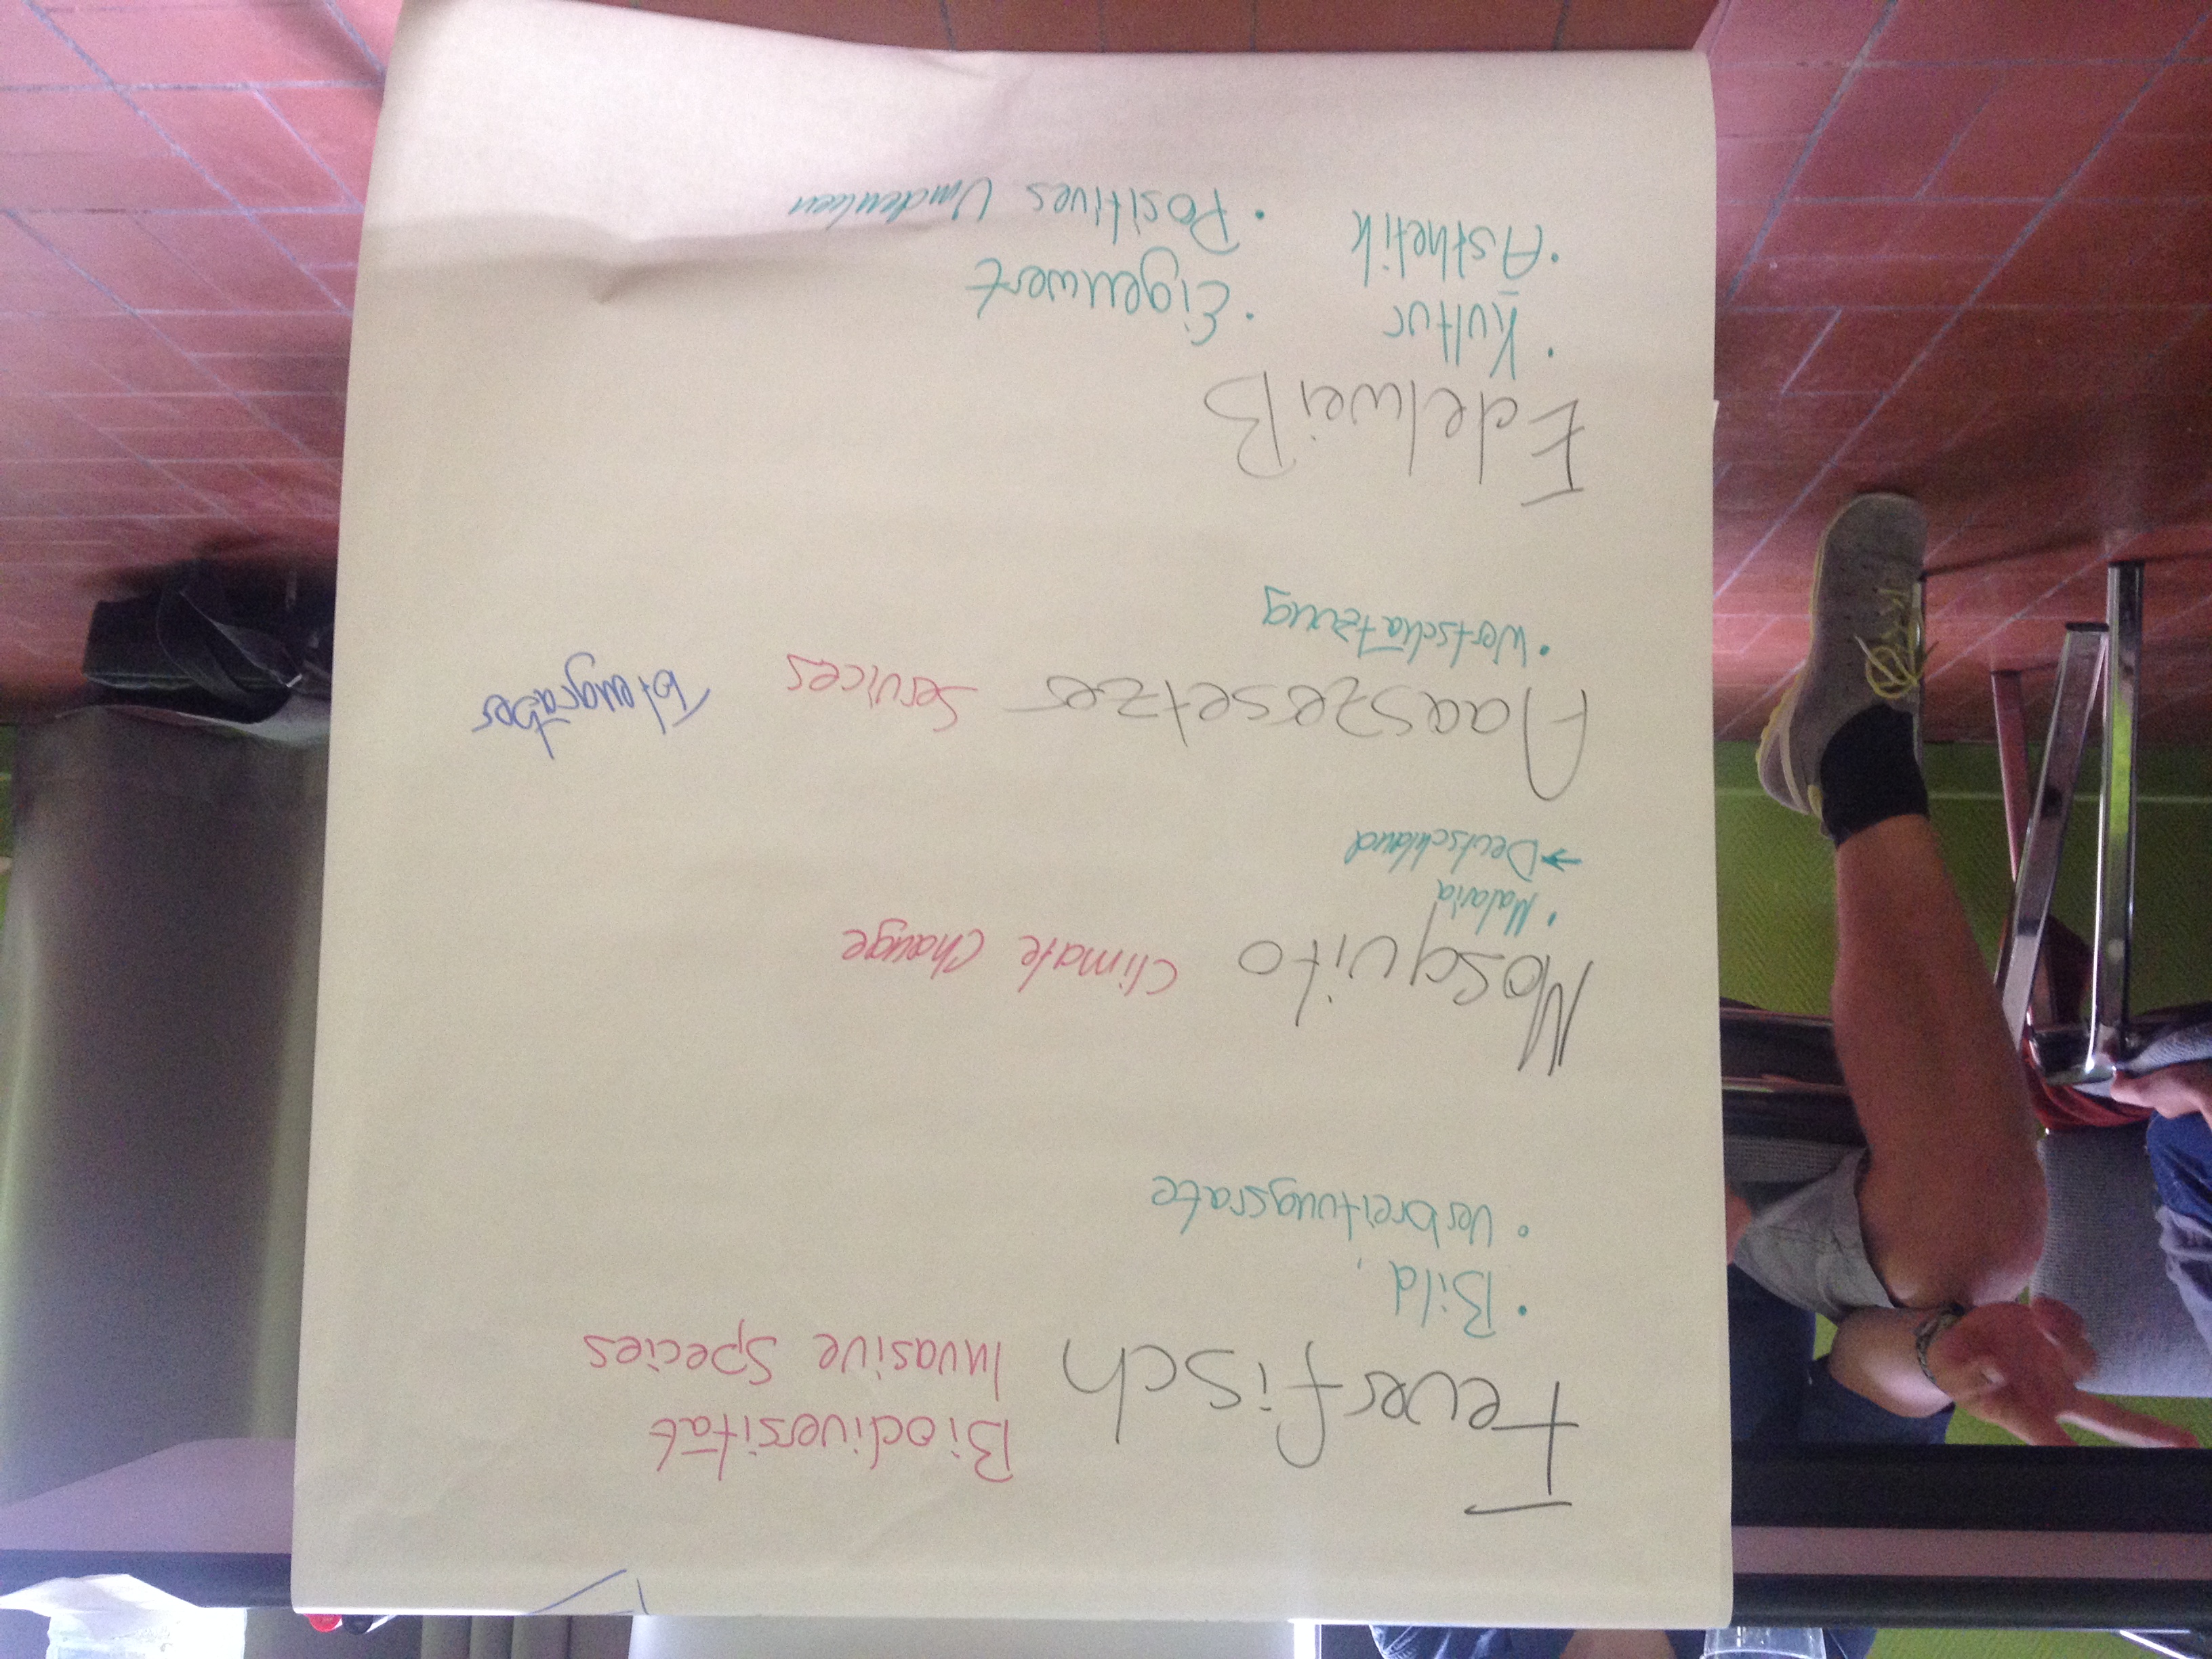 Biodiversität
Feuerfisch Invasive Species
• Bild
• Verbreitungsrate
Mosquito Climate Change
• Malaria
→ Deutschland
Aaszersetzer Services Totengräber
• Wertschätzung
Edelweiß
• Kultur • Eigenwert
• Ästhetik • Positives Umdenken